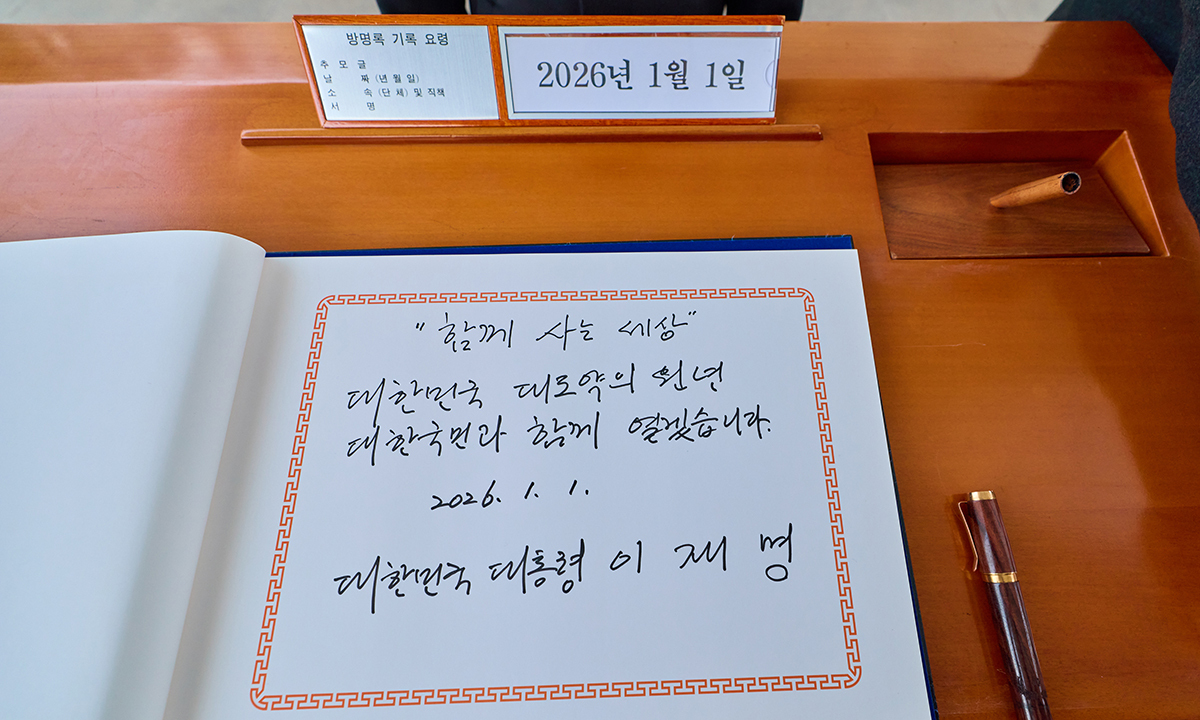 방명록 기록 요령
추 모 글
날 짜 (년 월 일)
소 속 (단 체) 및 직책
서 명
2026년 1월 1일
"함께 사는 세상"
대한민국 대도약의 원년
대한국민과 함께 열겠습니다.
2026. 1. 1.
대한민국 대통령 이 재 명